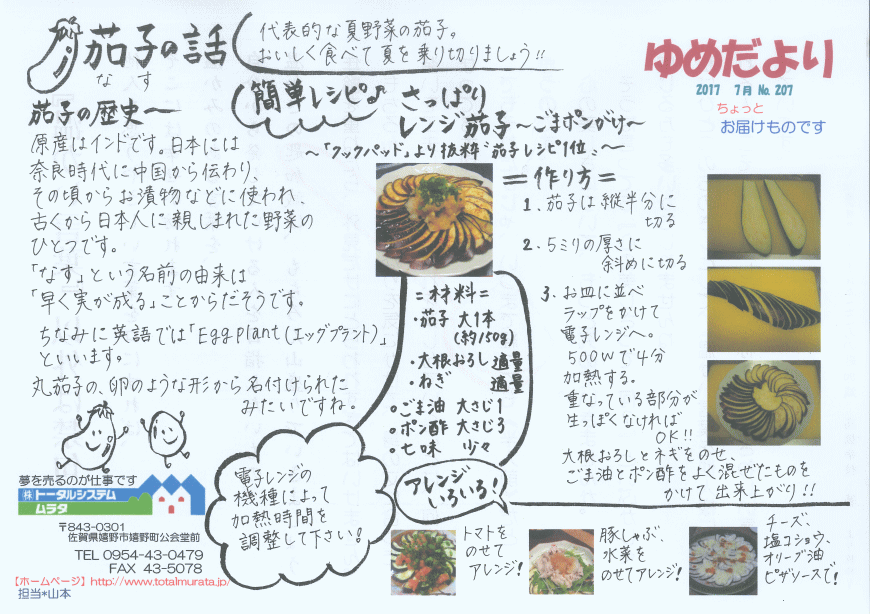 茄子の話
なす
代表的な夏野菜の茄子。
おいしく食べて夏を乗り切りましょう!!
ゆめだより
2017 7月 No. 207
ちょっと
お届けものです
茄子の歴史～
原産はインドです。日本には
奈良時代に中国から伝わり、
その頃からお漬物などに使われ、
古くから日本人に親しまれた野菜の
ひとつです。
「なす」という名前の由来は
「早く実が成る」ことからだそうです。
ちなみに英語では「Eggplant(エッグプラント)」
といいます。
丸茄子の、卵のような形から名付けられた
みたいですね。
簡単レシピ♪
さっぱり
レンジ茄子～ごまポンがけ～
～「クックパッド」より抜粋"茄子レシピ1位"～
=材料=
・茄子 大1本
(約150g)
・大根おろし 適量
・ねぎ 適量
○ごま油 大さじ1
○ポン酢 大さじ3
○七味 少々
=作り方=
1. 茄子は縦半分に
切る
2. 5ミリの厚さに
斜めに切る
3. お皿に並べ
ラップをかけて
電子レンジへ。
500Wで4分
加熱する。
重なっている部分が
生っぽくなければ
OK!!
大根おろしとネギをのせ、
ごま油とポン酢をよく混ぜたものを
かけて出来上がり!!
電子レンジの
機種によって
加熱時間を
調整して下さい!
アレンジ
いろいろ!
トマトを
のせて
アレンジ!
豚しゃぶ、
水菜を
のせてアレンジ!
チーズ、
塩コショウ、
オリーブ油
ピザソースで!
夢を売るのが仕事です
㈱トータルシステム
ムラタ
〒843-0301
佐賀県嬉野市嬉野町公会堂前
TEL 0954-43-0479
FAX 43-5078
【ホームページ】http://www.totalmurata.jp/
担当*山本